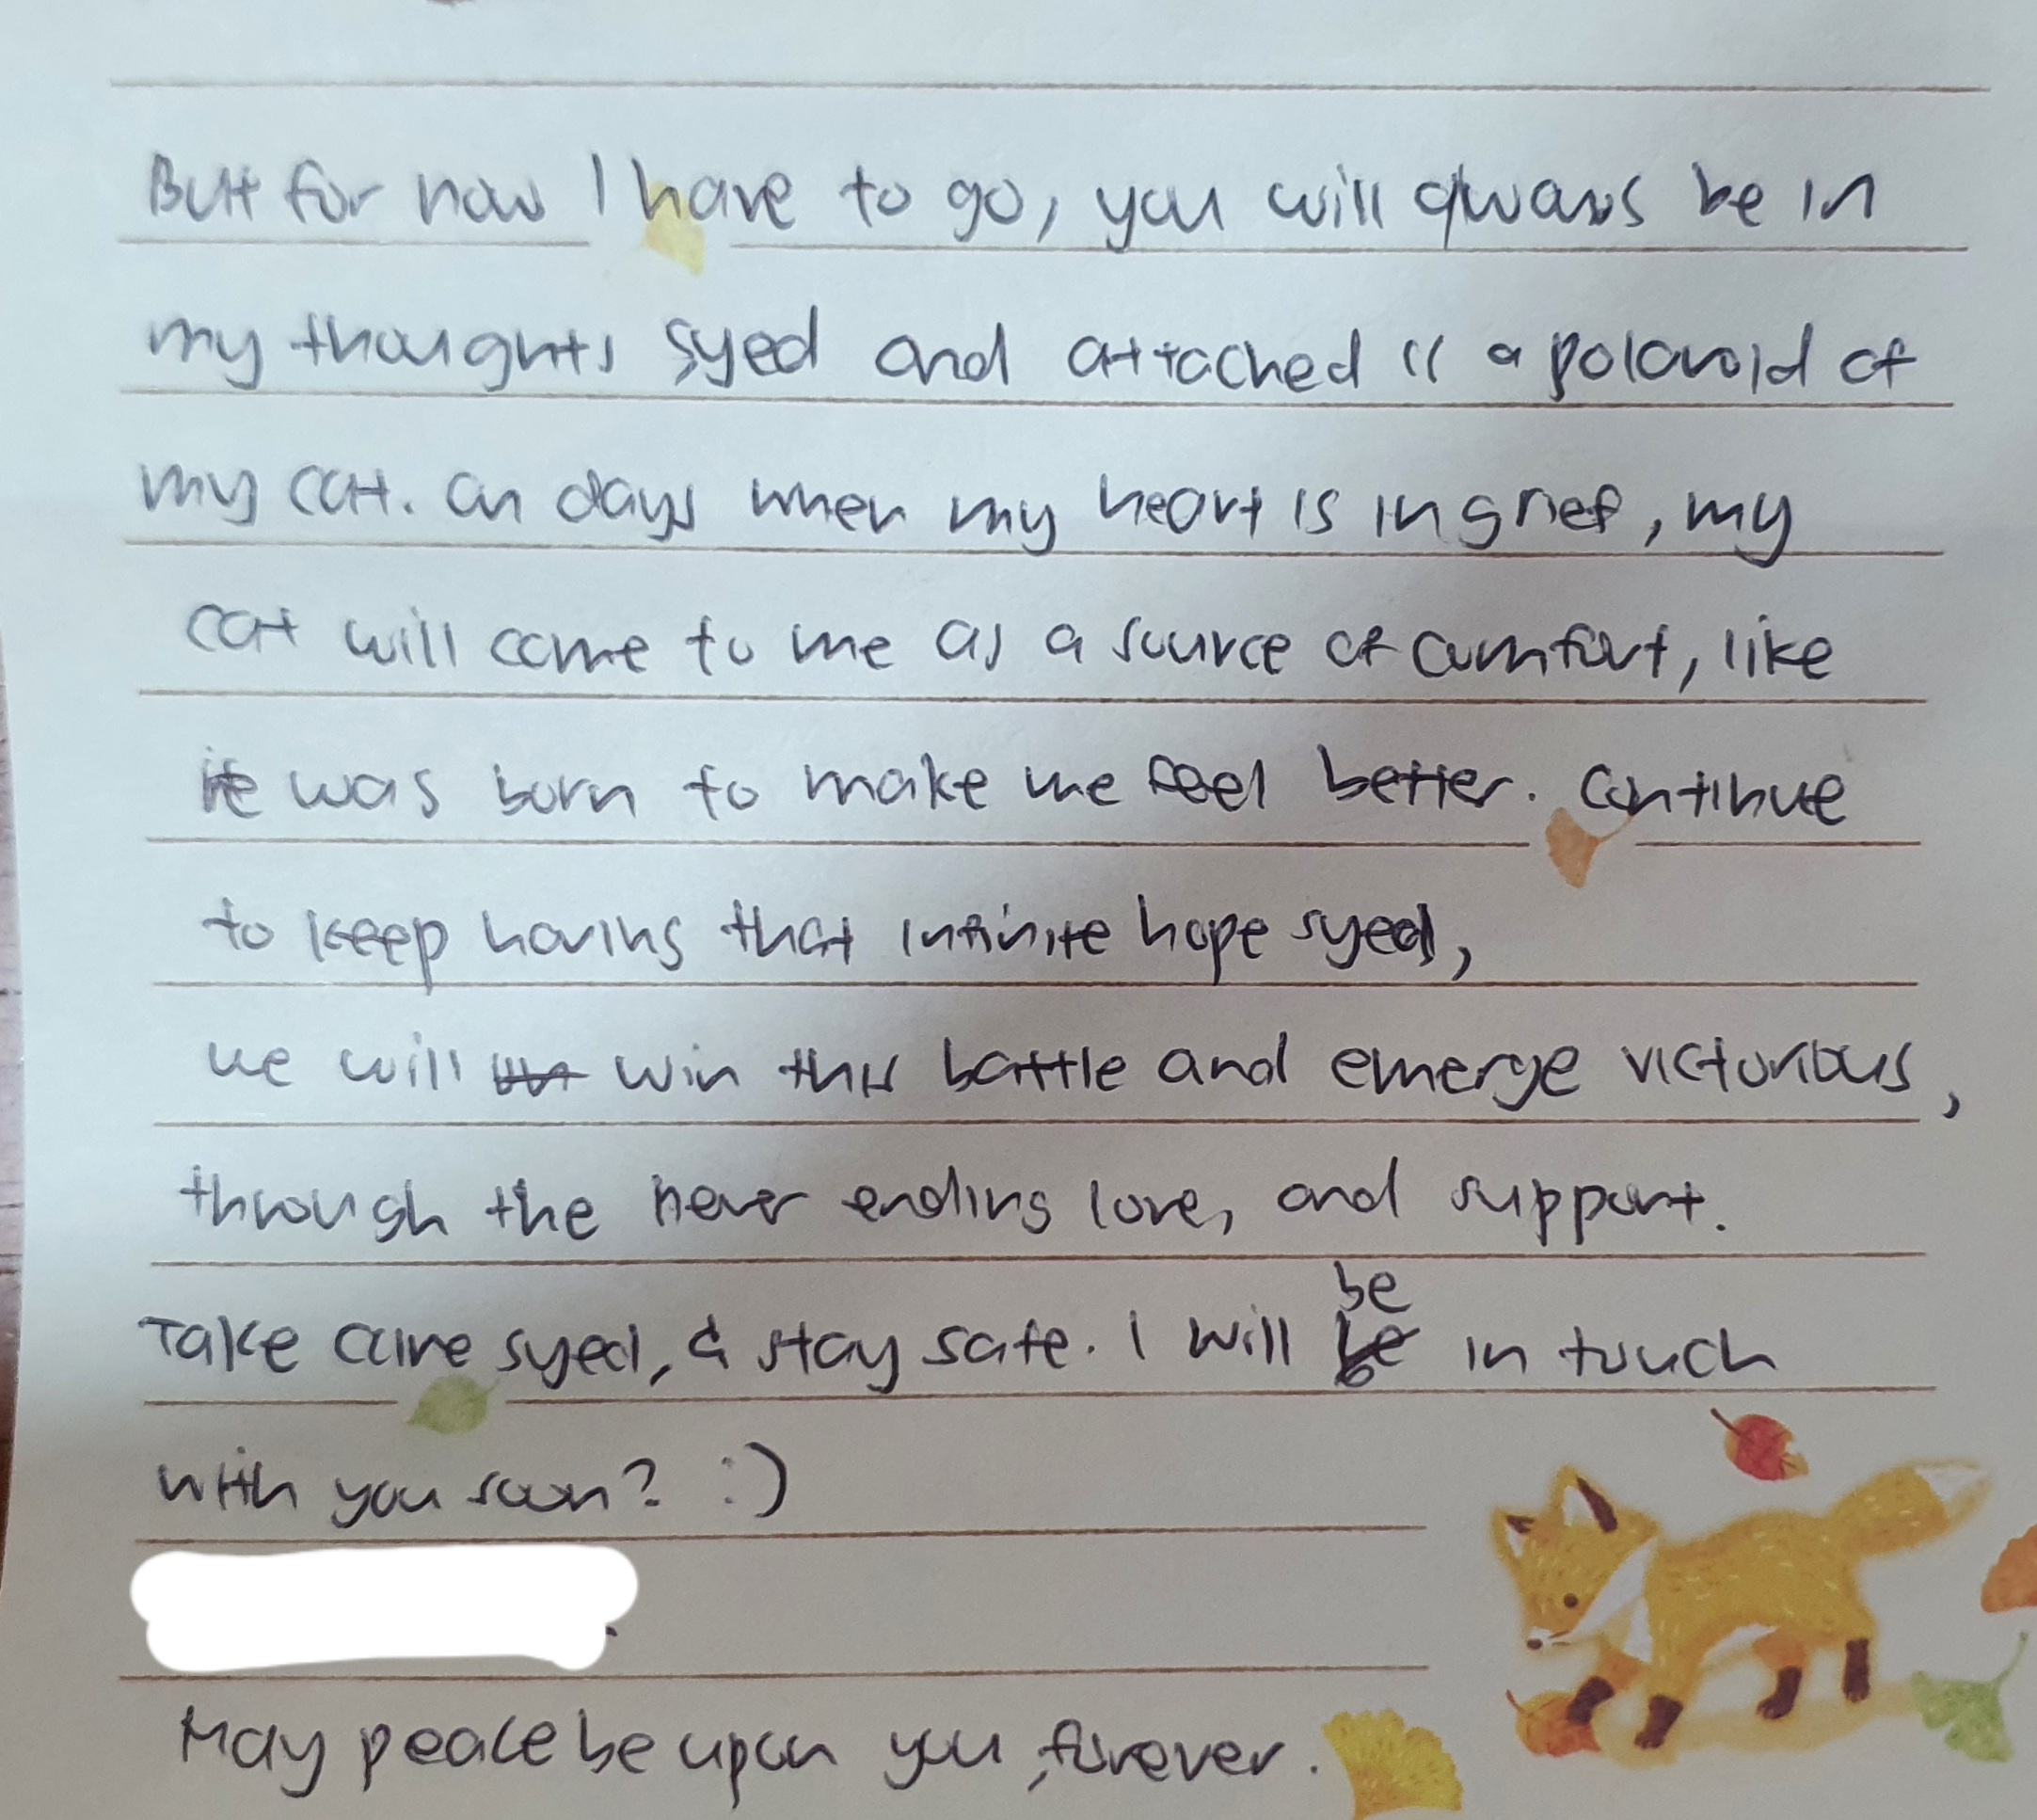 But for now I have to go, you will always be in
my thoughts syed and attached is a polaroid of
my cat. On days when my heart is in grief, my
cat will come to me as a source of comfort, like
it was born to make me feel better. Continue
to keep having that infinite hope syed,
we will win this battle and emerge victorious,
through the never ending love, and support.
Take care syed, & stay safe. I will be in touch
with you soon? :)
May peace be upon you, forever.